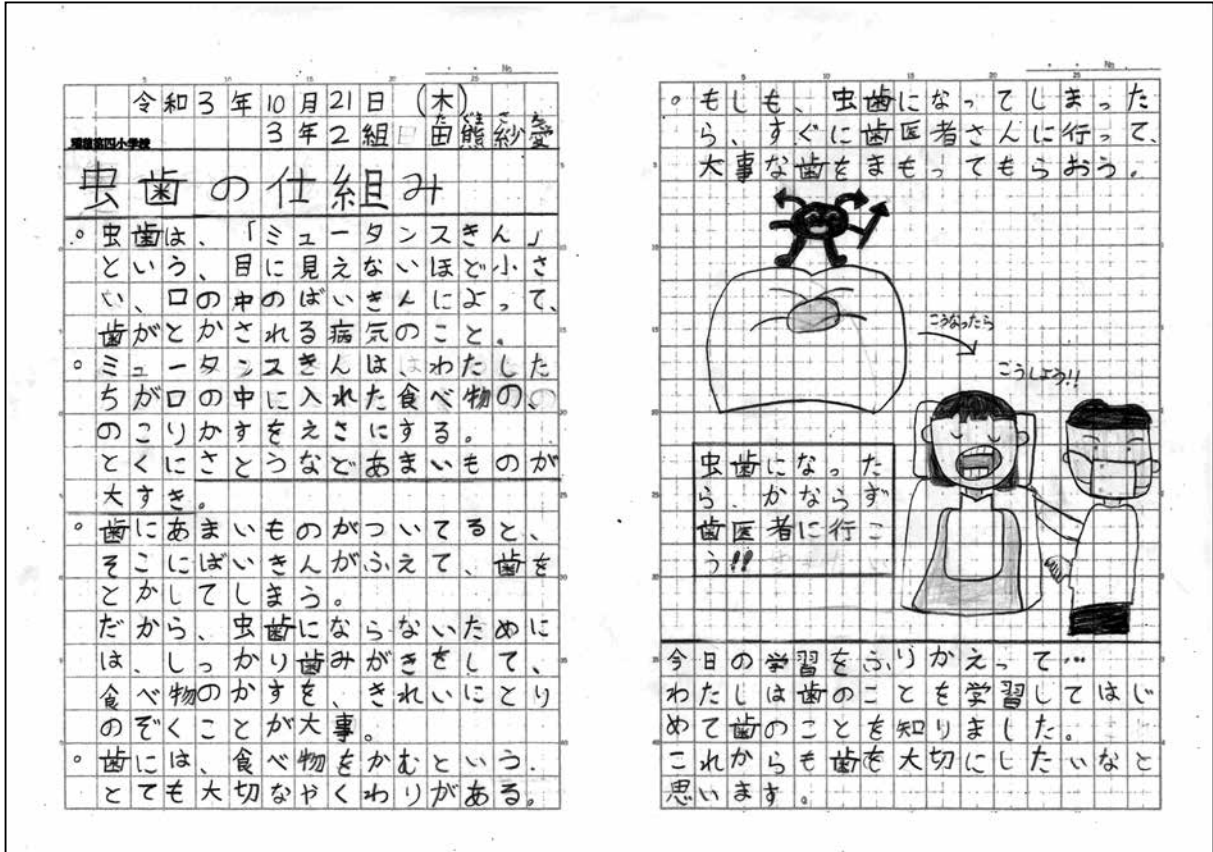 令和3年10月21日(木)
3年2組 田熊紗愛
虫歯の仕組み
。虫歯は、「ミュータンスきん」
という、目に見えないほど小さ
い、口の中のばいきんによって、
歯がとかされる病気のこと。
。ミュータンスきんは、わたした
ちが口の中に入れた食べ物の、
のこりかすをえさにする。
とくにさとうなどあまいものが
大すき。
。歯にあまいものがついてると、
そこにばいきんがふえて、歯を
とかしてしまう。
だから、虫歯にならないために
は、しっかり歯みがきをして、
食べ物のかすを、きれいにとり
のぞくことが大事。
。歯には、食べ物をかむという、
とても大切なやくわりがある。
。もしも、虫歯になってしまった
ら、すぐに歯医者さんに行って、
大事な歯をまもってもらおう。
こうなったら
こうしよう!!
虫歯になった
ら、かならず
歯医者に行こ
う!!
今日の学習をふりかえって…
わたしは歯のことを学習してはじ
めて歯のことを知りました。
これからも歯を大切にしたいなと
思います。